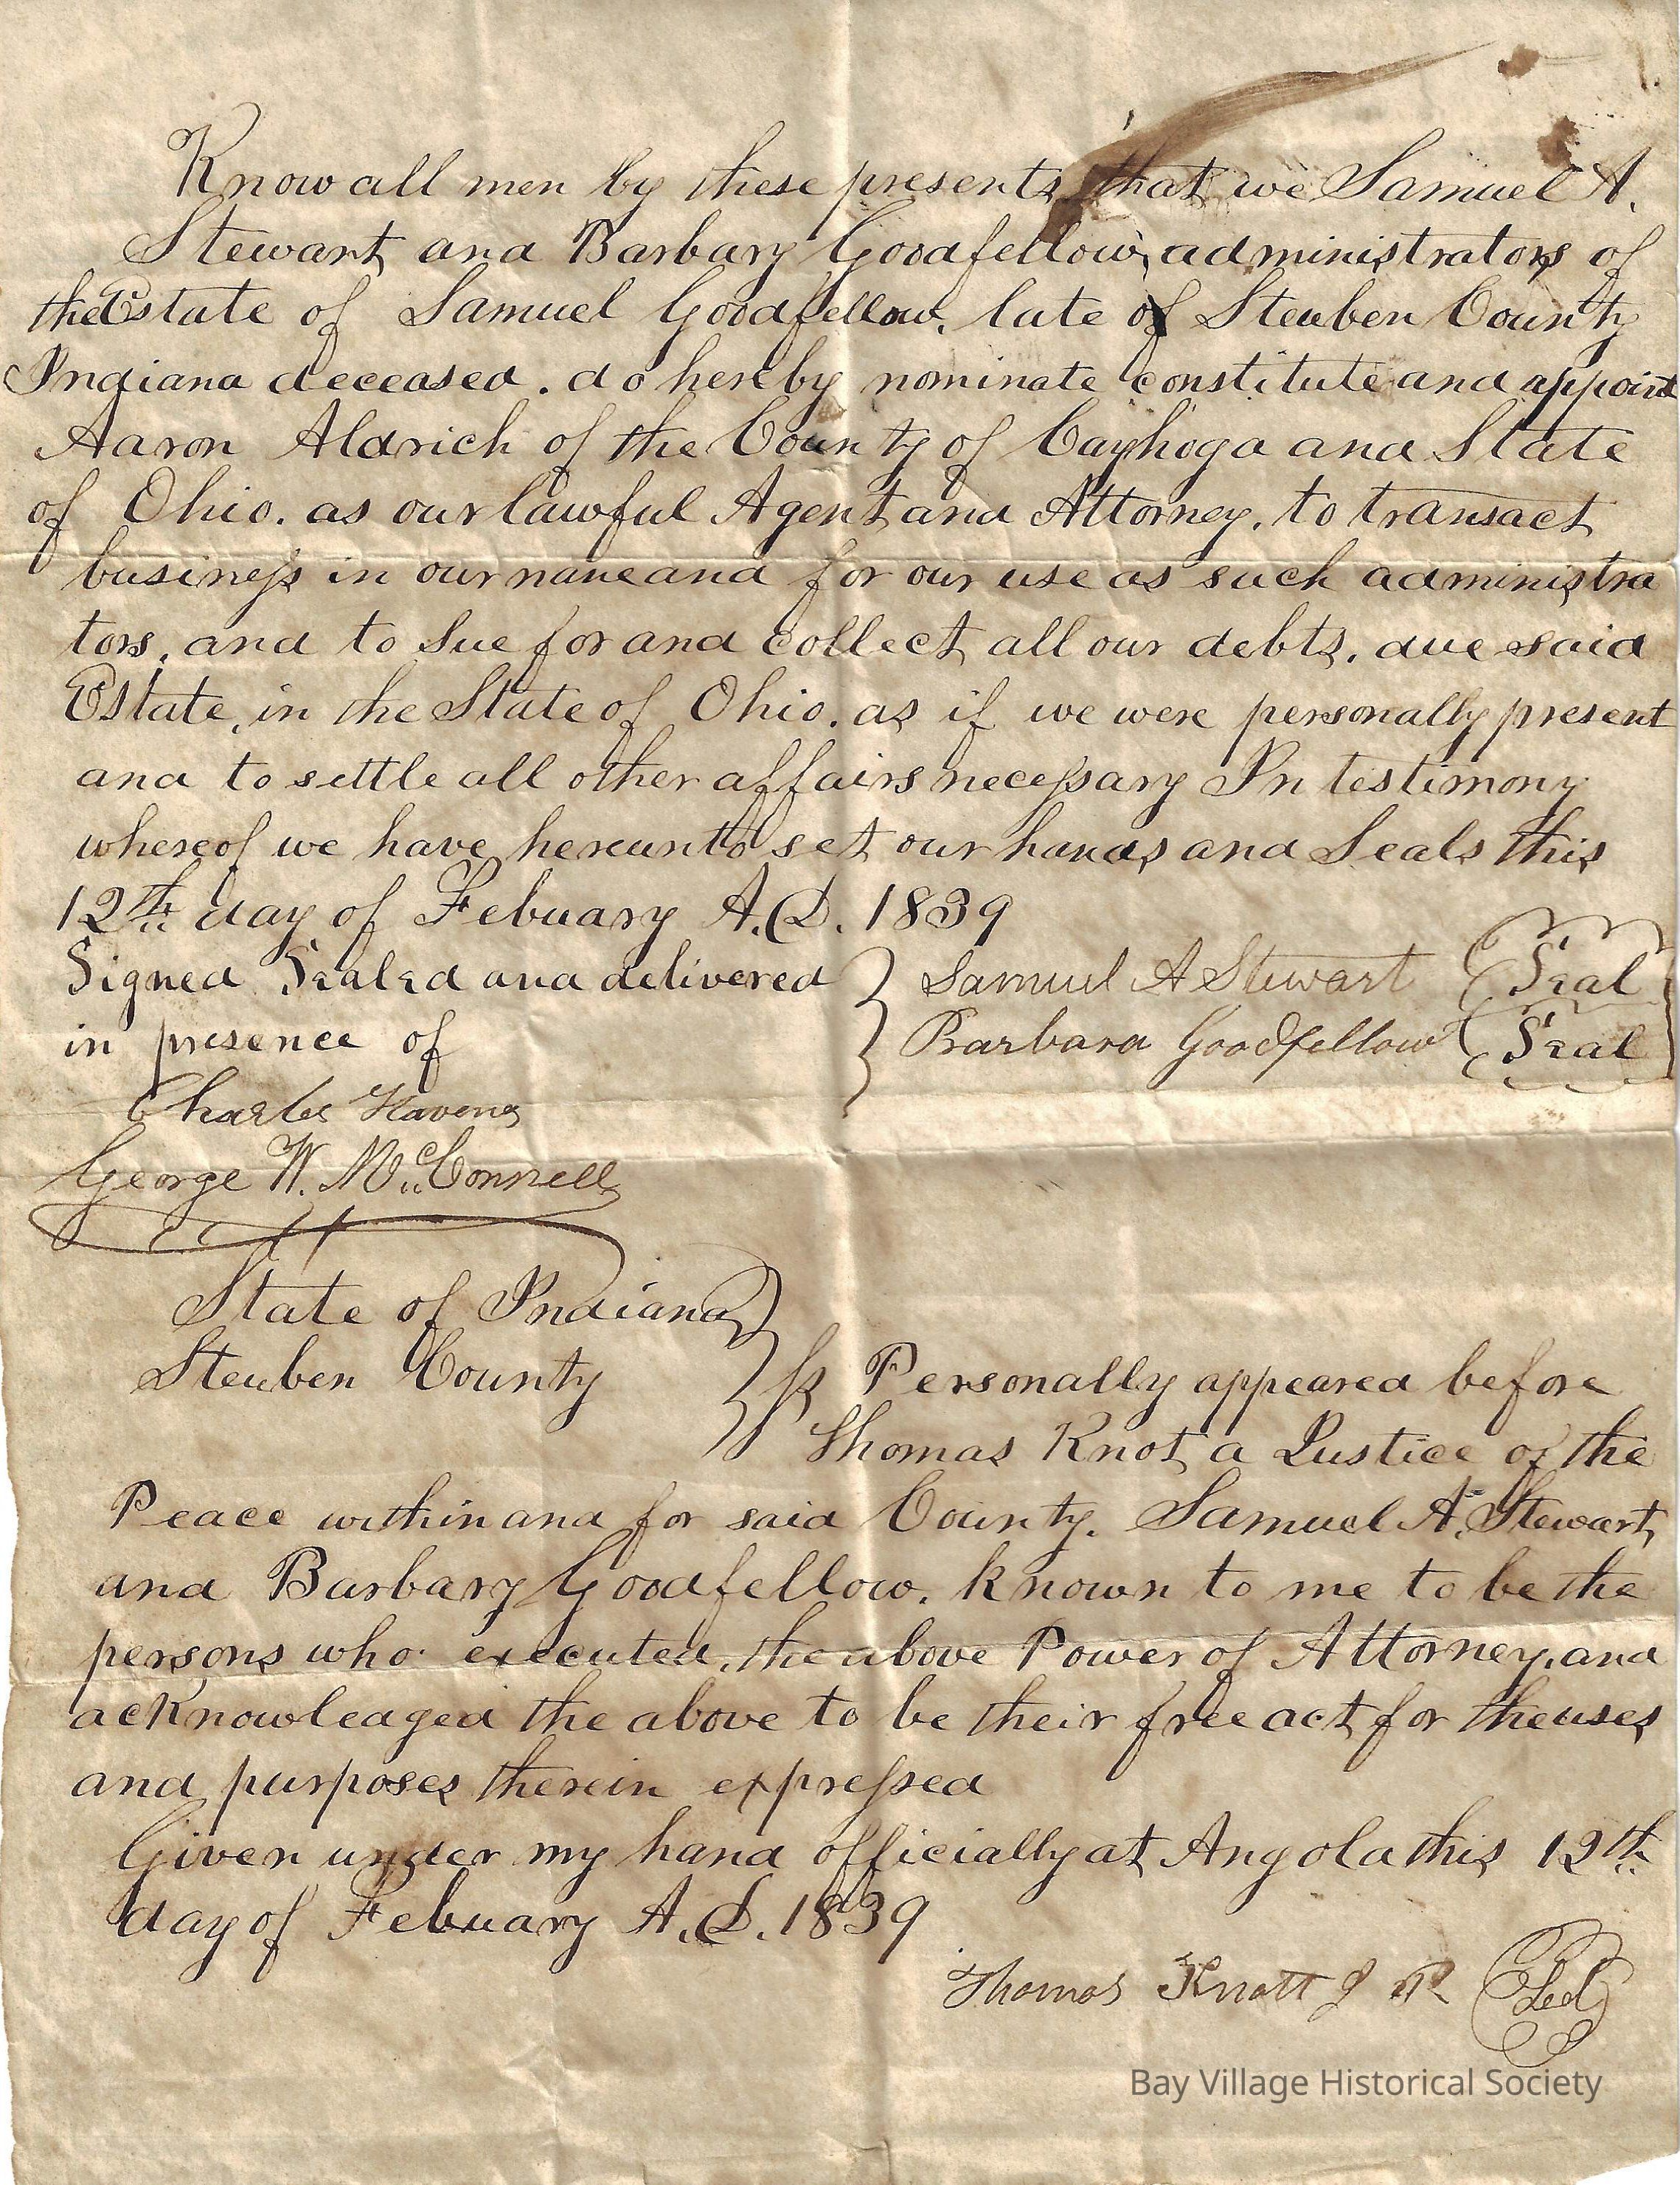 Know all men by these presents, that we Samuel A.
Stewart and Barbary Goodfellow, administrators of
the Estate of Samuel Goodfellow, late of Steuben County
Indiana deceased. do hereby nominate constitute and appoint
Aaron Aldrich of the County of Cayhoga and State
of Ohio. as our lawful Agent and Attorney, to transact
business in our name and for our use as such administra
tors, and to Sue for and collect all our debts, due said
Estate, in the State of Ohio. as if we were personally present
and to settle all other affairs necessary In testimony
whereof we have hereunto set our hands and Seals this
12th day of Febuary A.D. 1839
Signed Sealed and delivered } Samuel A Stewart (Seal
in presence of } Barbara Goodfellow (Seal
Charles Havens
George W. McConnell
State of Indiana }
Steuben County } ss Personally appeared before
Thomas Knot a Justice of the
Peace within and for said County. Samuel A. Stewart,
and Barbary Goodfellow. known to me to be the
persons who executed, the above Power of Attorney, and
acknowledged the above to be their free act for the uses
and purposes therein expressed
Given under my hand officially at Angola this 12th
day of Febuary A.D. 1839
Thomas Knott J P
Bay Village Historical Society